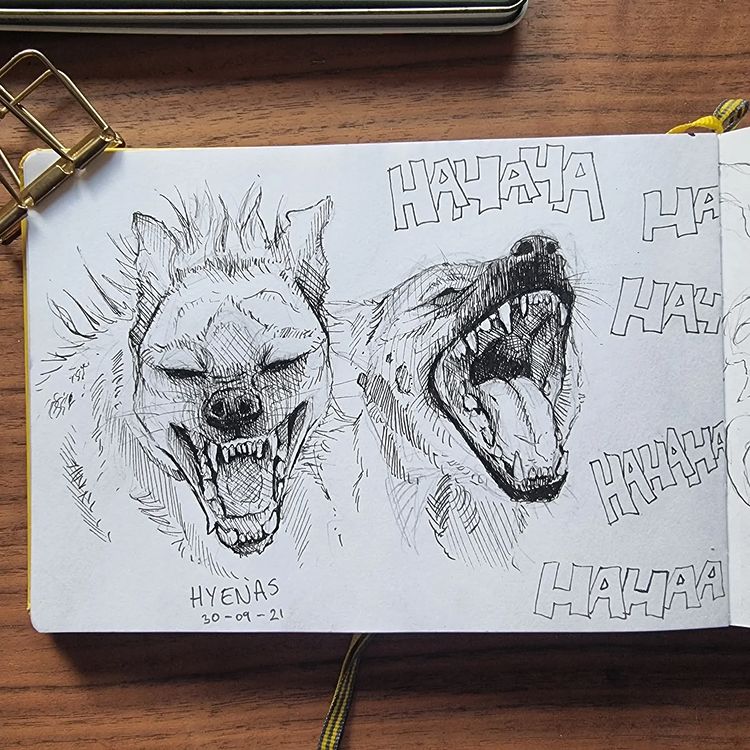 HAHAHA
HA
HAH
HAHAHA
HAHAA
HYENAS
30-09-21